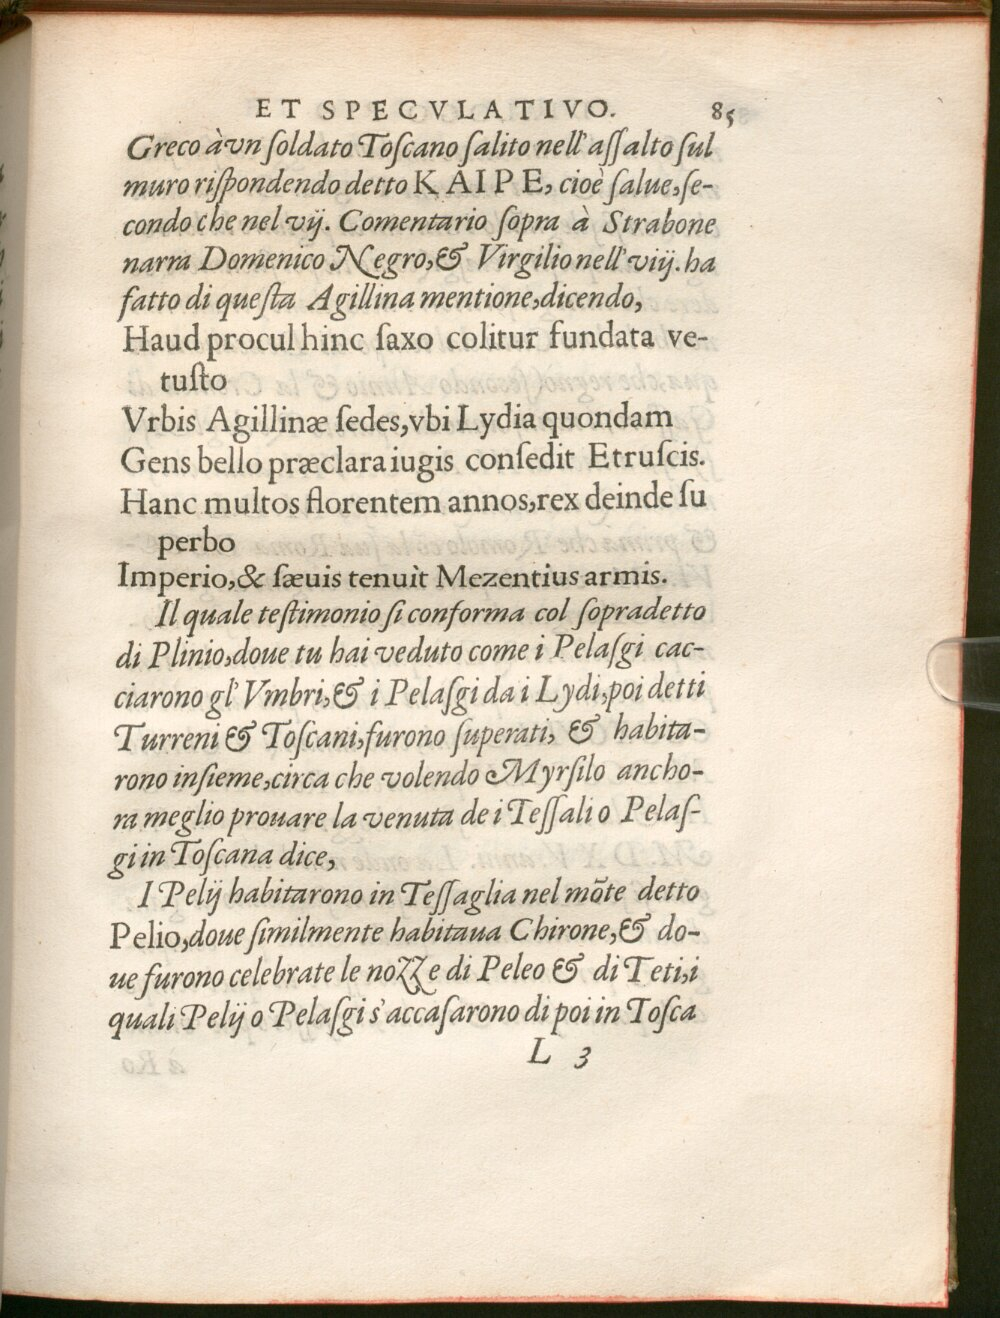 ET SPECVLATIVO. 85
Greco à vn ſoldato Toſcano ſalito nell' aſſalto ſul
muro riſpondendo detto KAIPE, cioè ſalue, ſe-
condo che nel vij. Comentario ſopra à Strabone
narra Domenico Negro, & Virgilio nell' viij. ha
fatto di queſta Agillina mentione, dicendo,
Haud procul hinc ſaxo colitur fundata ve-
tuſto
Vrbis Agillinæ ſedes, vbi Lydia quondam
Gens bello præclara iugis conſedit Etruſcis.
Hanc multos florentem annos, rex deinde ſu
perbo
Imperio, & ſæuis tenuìt Mezentius armis.
Il quale teſtimonio ſi conforma col ſopradetto
di Plinio, doue tu hai veduto come i Pelaſgi cac-
ciarono gl' Vmbri, & i Pelaſgi da i Lydi, poi detti
Turreni & Toſcani, furono ſuperati, & habita-
rono inſieme, circa che volendo Myrſilo ancho-
ra meglio prouare la venuta de i Teſſali o Pelaſ-
gi in Toſcana dice,
I Pelij habitarono in Teſſaglia nel mõte detto
Pelio, doue ſimilmente habitaua Chirone, & do-
ue furono celebrate le nozze di Peleo & di Teti, i
quali Pelij o Pelaſgi s' accaſarono di poi in Toſca
L 3